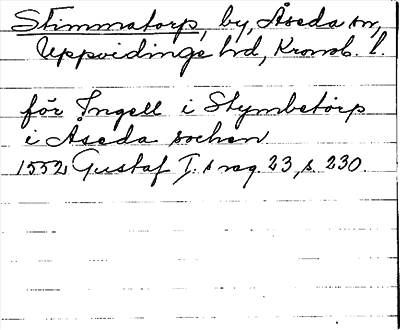 Stimmatorp, by, Åseda sn,
Uppvidinge hd, Kronob. l.
för Ingell i Stymbetorp
i Aseda sochen
1552 Gustaf I. s reg. 23, s. 230.